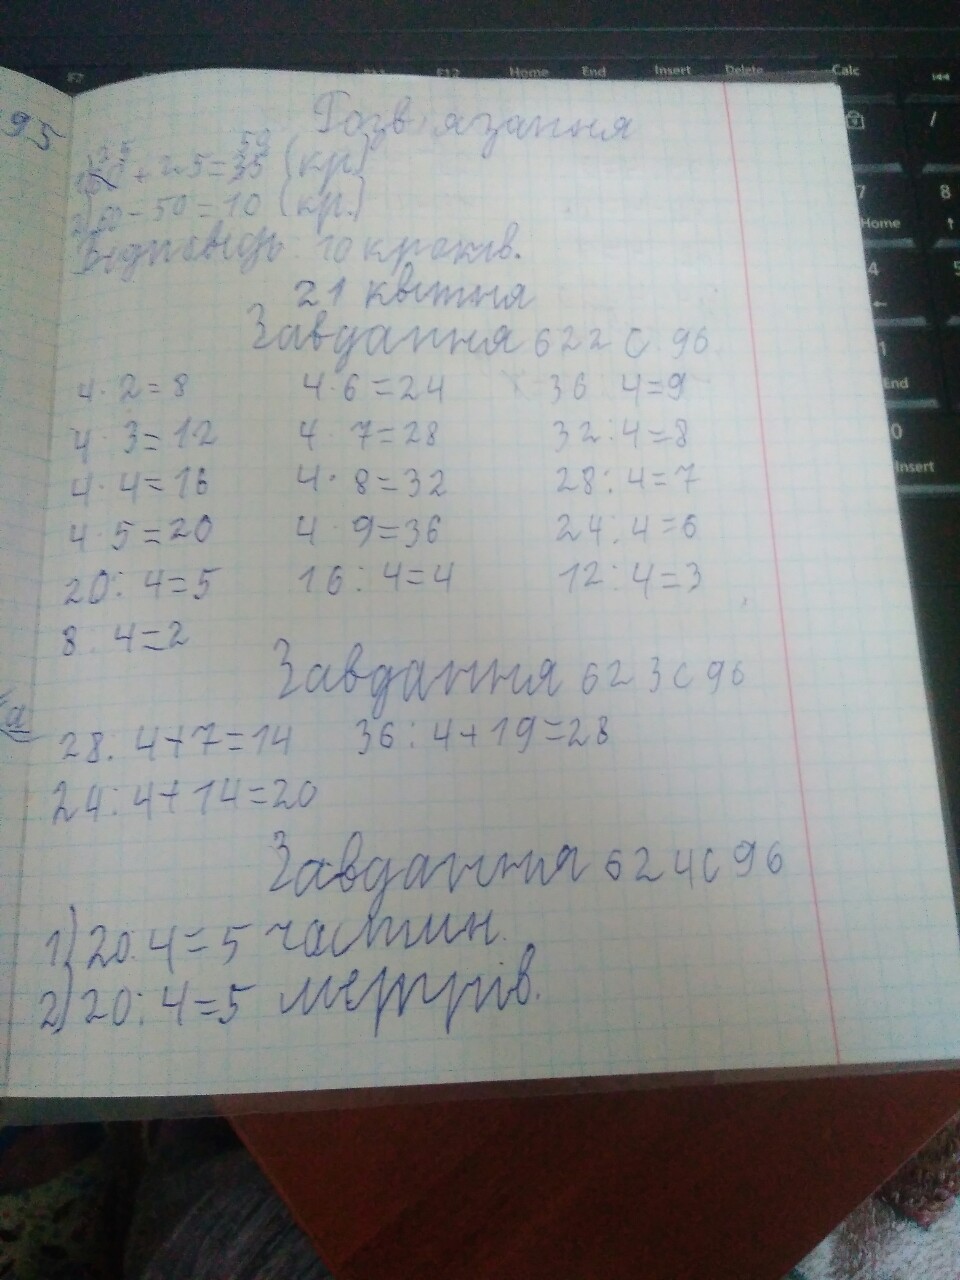 95
F7 F12 Home End Insert Delete Calc
Розв'язання
25 50
1) 10 + 25 = 35 (кр)
2) 60 - 50 = 10 (кр.)
Відповідь: 10 кроків.
21 квітня
Завдання 622 с 96
4 · 2 = 8 4 · 6 = 24 36 4 = 9
4 · 3 = 12 4 · 7 = 28 32 : 4 = 8
4 · 4 = 16 4 · 8 = 32 28 : 4 = 7
4 · 5 = 20 4 9 = 36 24 : 4 = 6
20 : 4 = 5 16 : 4 = 4 12 : 4 = 3
8 : 4 = 2
Завдання 623 с 96
28 : 4 + 7 = 14 36 : 4 + 19 = 28
24 : 4 + 14 = 20
Завдання 624 с 96
1) 20 : 4 = 5 частин.
2) 20 : 4 = 5 метрів.
/
7 Home
8
4
5
1 End
0 Insert